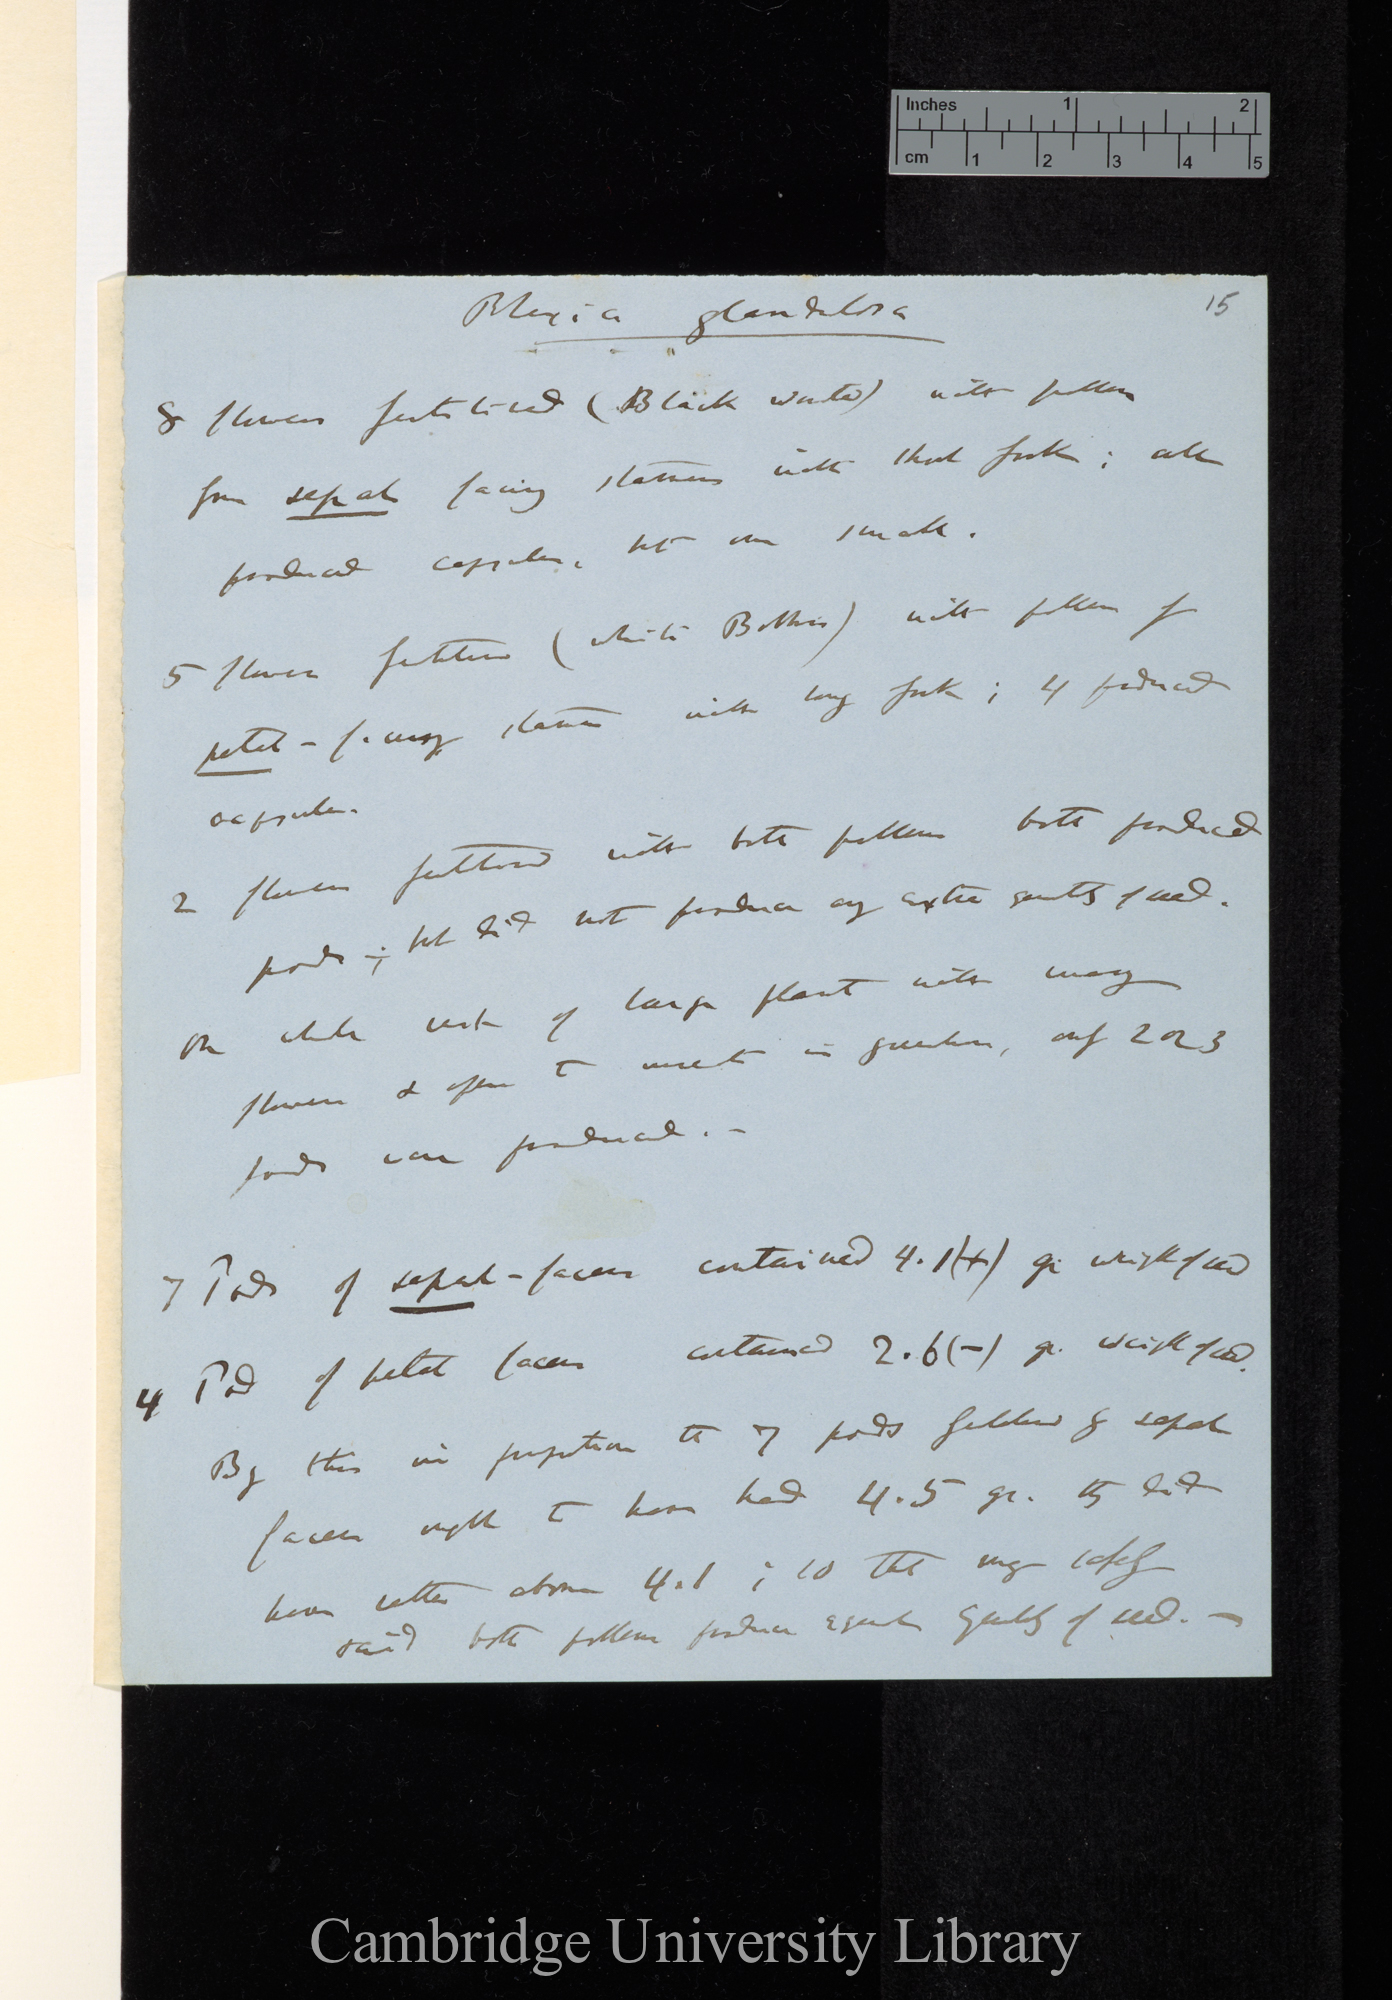 Inches 1 2
cm 1 2 3 4 5
15
Rhexia glandulosa
8 flowers fertilised (Black worsted) with pollen
from sepal facing stamens with short fork; all
produced capsules, but one small.
5 flowers fertilised (white Bothers) with pollen of
petal-facing stamens with long fork; 4 produced
capsules.
2 flowers fertilised with both pollens both produced
pods; but did not produce any extra quantity of seed.
On whole rest of large plant with many
flowers & open to insects in greenhouse, only 2 or 3
pods were produced. —
7 Pods of sepal-facers contained 4.1(+) gr weight of seed
4 Pods of petal facers contained 2.6(-) gr. weight of seed.
By this in proportion the 7 pods fertilised by sepal
facers ought to have had 4.5 gr. they did
have rather above 4.1; so that may safely
said both pollens produce equal quantity of seed. —
Cambridge University Library